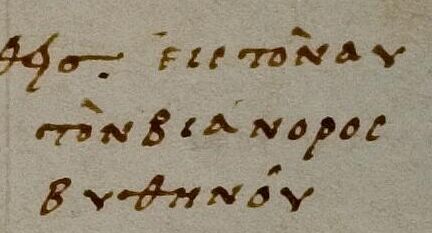 ἐις τὸν αυ
τὸν βιάνορος
βυθηνόυ